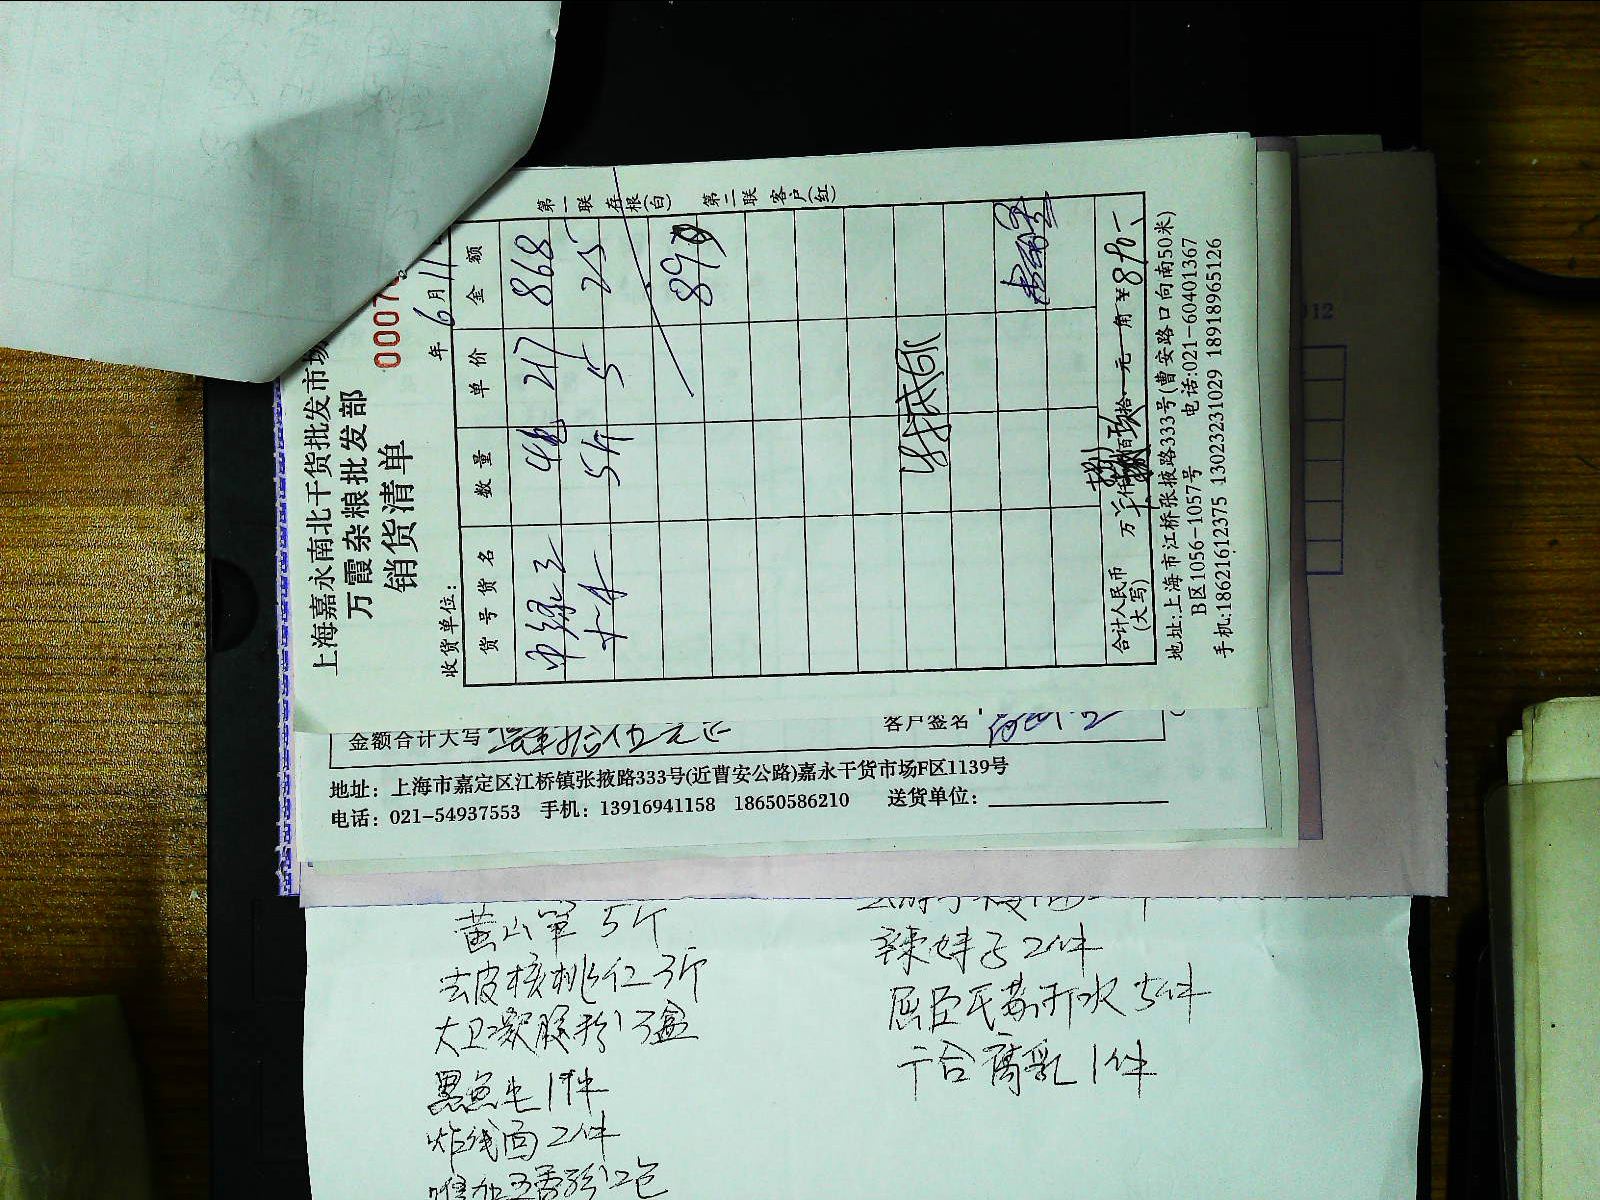 上海嘉永南北干货批发市场
万霞杂粮批发部
销货清单
0007
年 6月11
收货单位：
货号货名 数量 单价 金额
中绿豆 4包 217 868
5斤 5 25
893
合计人民币 万 仟 捌佰玖拾 元 角 ¥893
(大写)
地址:上海市江桥张掖路333号(曹安路口向南50米)
B区1056-1057号 电话:021-60401367
手机:18621612375 13023231029 18918965126
第一联 存根(白) 第二联 客户(红)
金额合计大写 拾伍元正 客户签名
地址：上海市嘉定区江桥镇张掖路333号(近曹安公路)嘉永干货市场F区1139号
电话：021-54937553 手机：13916941158 18650586210 送货单位：
12
黄山笋 5斤
去皮核桃仁 3斤
大卫嫩豚粉 3盒
黑鱼 1件
炸线面 2件
2包
辣妹子 2件
屈臣氏苏打水 5件
广合腐乳 1件